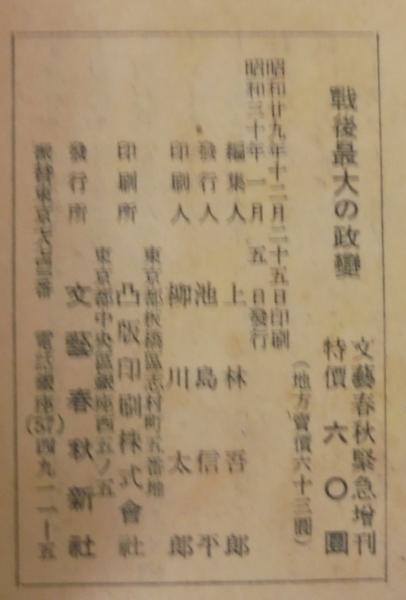 戰後最大の政變
文藝春秋緊急増刊
特價 六〇圓
(地方賣價六十三圓)
昭和廿九年十二月二十五日印刷
昭和三十年一月五日發行
編集人 上林吾郎
發行人 池島信平
印刷人 柳川太郎
東京都板橋區志村町五番地
印刷所 凸版印刷株式會社
東京都中央區銀座西五ノ五
發行所 文藝春秋新社
振替東京
電話銀座(57)四九一一―五